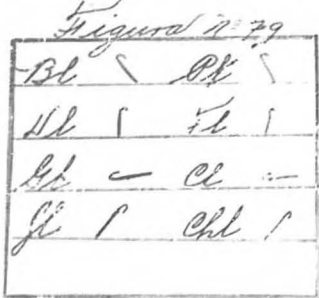 Figura nº 79
Bl Pl
Dl Tl
Gl Cl
Jl Chl